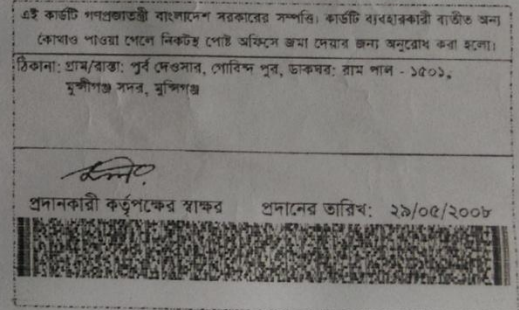 এই কার্ডটি গণপ্রজাতন্ত্রী বাংলাদেশ সরকারের সম্পত্তি। কার্ডটি ব্যবহারকারী ব্যতীত অন্য
কোথাও পাওয়া গেলে নিকটস্থ পোষ্ট অফিসে জমা দেয়ার জন্য অনুরোধ করা হলো।
ঠিকানা: গ্রাম/রাস্তা: পুর্ব দেওসার, গোবিন্দ পুর, ডাকঘর: রাম পাল - ১৫০১,
মুন্সীগঞ্জ সদর, মুন্সিগঞ্জ
প্রদানকারী কর্তৃপক্ষের স্বাক্ষর প্রদানের তারিখ: ২৯/০৫/২০০৮